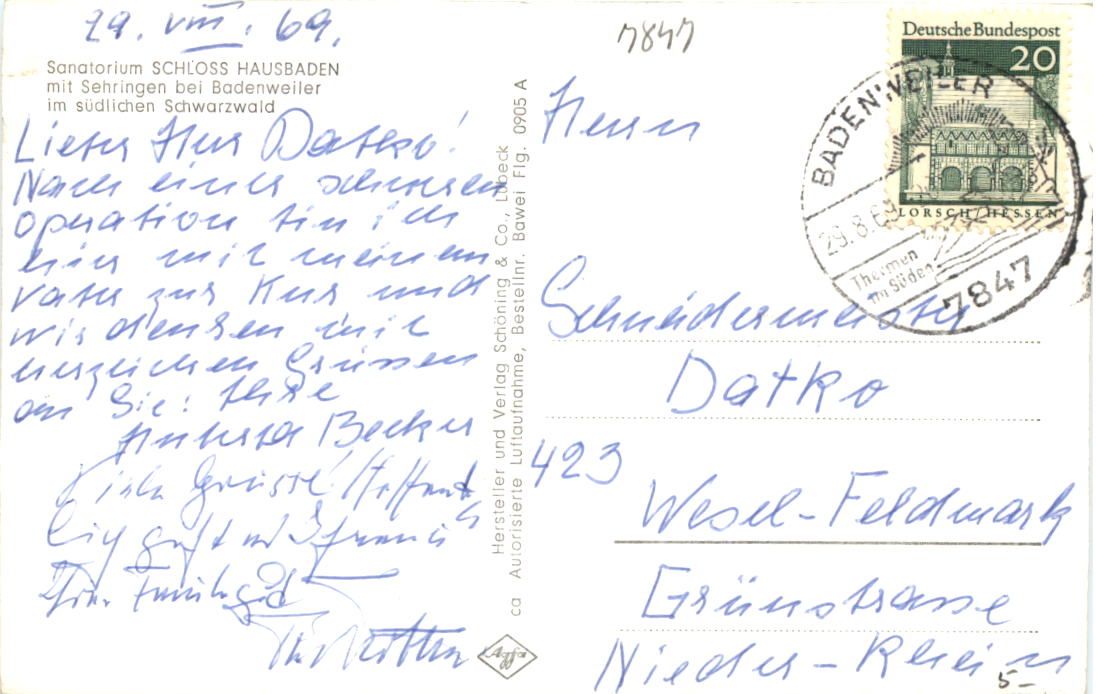 29. VIII. 69.
Sanatorium SCHLOSS HAUSBADEN
mit Sehringen bei Badenweiler
im südlichen Schwarzwald
Lieber Herr Datko!
Nach einer schweren
Operation bin ich
hier mit meinem
Vater zur Kur und
wir denken mit
herzlichen Grüssen
an Sie: Ihre
Becker
Viele Grüsse! Hoffent-
lich geht es Ihnen u.
Ihrer Familie gut
Hersteller und Verlag Schöning & Co., Lübeck
ca Autorisierte Luftaufnahme, Bestellnr. Bawei Flg. 0905 A
Agfa
7847
Deutsche Bundespost
20
LORSCH/HESSEN
BADENWEILER
29.8.69
Thermen
im Süden
7847
Herrn
Schneidermeister
Datko
423
Wesel-Feldmark
Grünstrasse
Nieder-Rhein
5-